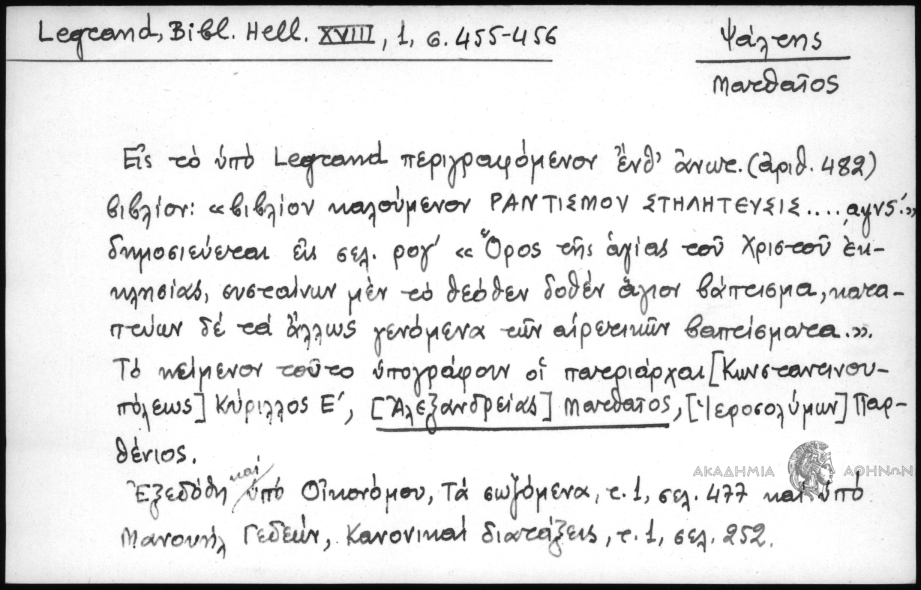 Legrand, Bibl. Hell. XVIII, 1, σ. 455-456
Ψάλτης
Ματθαῖος
Εἰς τὸ ὑπὸ Legrand περιγραφόμενον ἔνθ' ἀνωτ. (ἀριθ. 482)
βιβλίον: «βιβλίον καλούμενον ΡΑΝΤΙΣΜΟΥ ΣΤΗΛΙΤΕΥΣΙΣ.... αψνϛ΄.»
δημοσιεύεται εἰς σελ. ρογ΄ «Ὅρος τῆς ἁγίας τοῦ Χριστοῦ ἐκ-
κλησίας, συσταίνων μὲν τὸ θεόθεν δοθὲν ἅγιον βάπτισμα, κατα-
πτύων δὲ τὰ ἄλλως γενόμενα τῶν αἱρετικῶν βαπτίσματα.».
Τὸ κείμενον τοῦτο ὑπογράφουν οἱ πατριάρχαι [Κωνσταντινου-
πόλεως] Κύριλλος Ε΄, [Ἀλεξανδρείας] Ματθαῖος, [Ἱεροσολύμων] Παρ-
θένιος.
Ἐξεδόθη καὶ ὑπὸ Οἰκονόμου, Τὰ σωζόμενα, τ. 1, σελ. 477 καὶ ὑπὸ
Μανουὴλ Γεδεών, Κανονικαὶ διατάξεις, τ. 1, σελ. 252.
ΑΚΑΔΗΜΙΑ ΑΘΗΝΩΝ